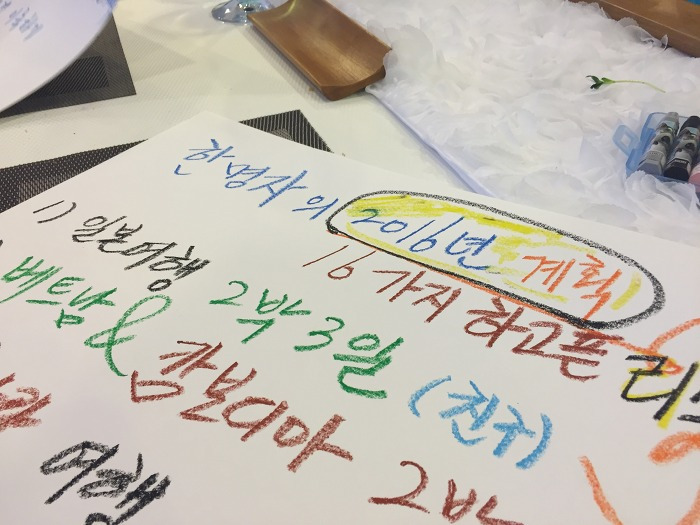 한명자의 2016년 계획
16가지 하고픈
1) 일본여행 2박3일 (친구)
베트남 & 캄보디아 2박
여행